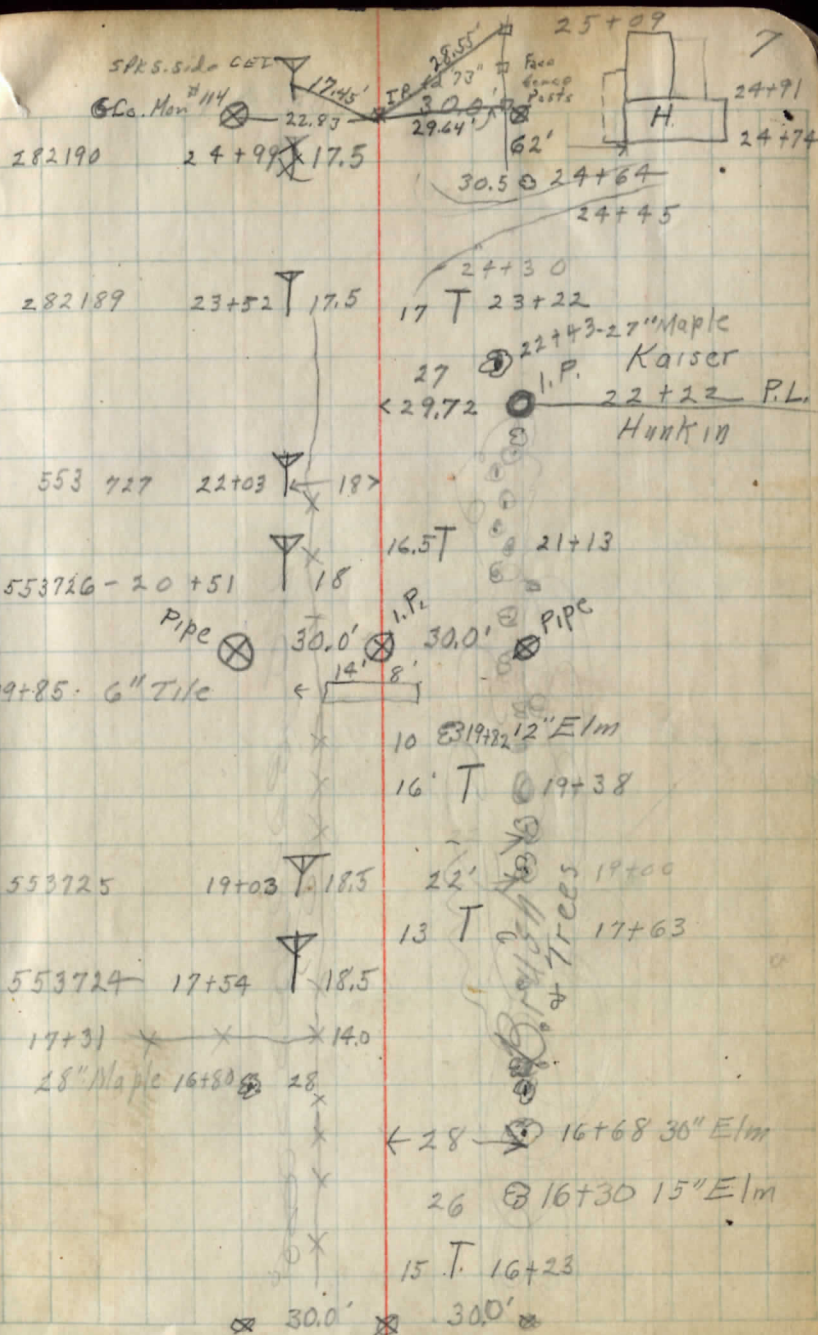 25+09
7
SPk S. side CEI
17.45'
I.P.
28.55'
2.73"
Face
fence
Posts
24+91
G Co. Mon #114
22.83
30.0'
29.64'
H.
24+74
62'
282190 24+99 17.5
30.5 24+64
24+45
24+30
282189 23+52 17.5
17 T 23+22
22+43-27" Maple
27
Kaiser
I.P.
29.72
22+22 P.L.
Hunkin
553 727 22+03 18
16.5 T 21+13
553726 - 20+51 18
Pipe 30.0' I.P. 30.0' Pipe
14' 8'
9+85. 6" Tile
10 19+82 12" Elm
16' T 19+38
553725 19+03 18.5
22' 19+00
13 T 17+63
Brush & Trees
553724 17+54 18.5
17+31 14.0
28" Maple 16+80 28
28 16+68 30" Elm
26 16+30 15" Elm
15 T 16+23
30.0' 30.0'